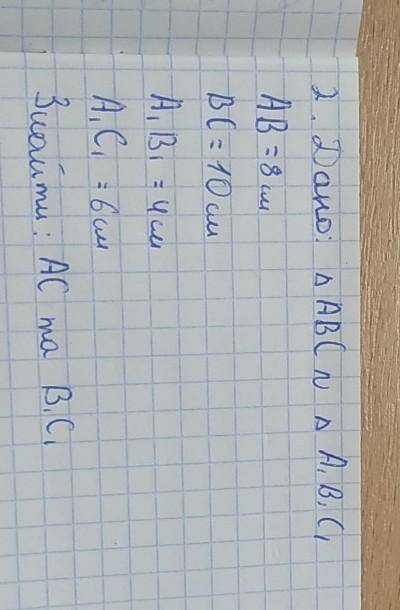 2. Дано: △ ABC ∾ △ A₁B₁C₁
AB = 8 см
BC = 10 см
A₁B₁ = 4 см
A₁C₁ = 6 см
Знайти: AC та B₁C₁